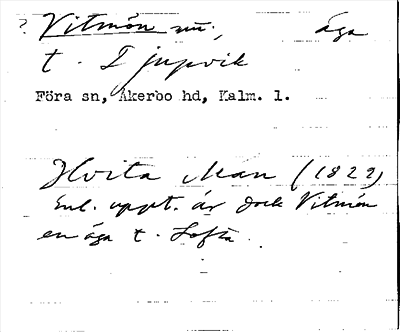 ? Vitmån nu., äga
t. Djupvik
Föra sn, Åkerbo hd, Kalm. l.
Hvita Mån (1822)
Enl. uppt. är dock Vitmån
en äga t. Lofta.